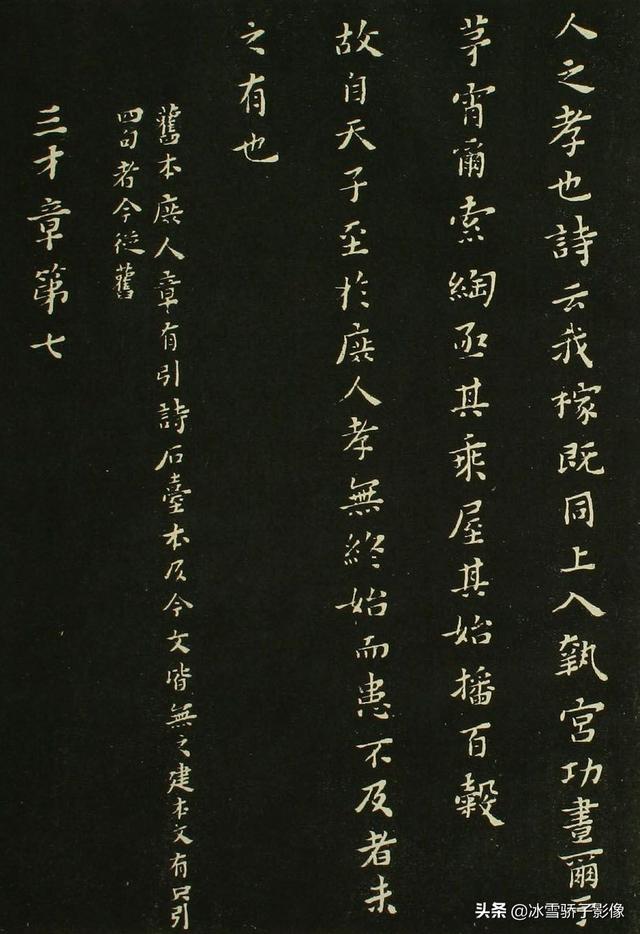 人之孝也詩云我稼既同上入執宮功晝爾于
茅宵爾索綯亟其乘屋其始播百穀
故自天子至於庶人孝無終始而患不及者未
之有也
舊本庶人章有引詩石臺本及今文皆無之建本文有只引
四句者今從舊
三才章第七
头条 @冰雪骄子影像